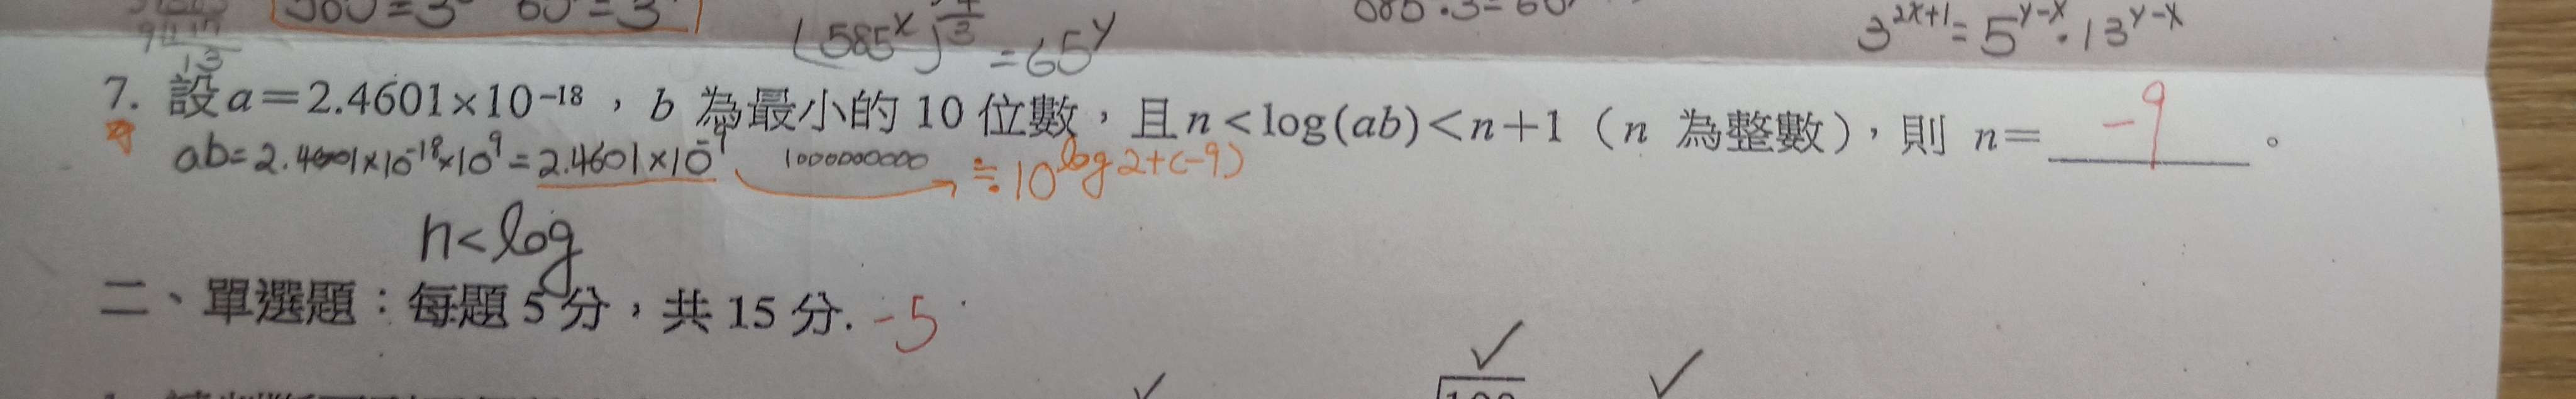 (585^x)^{4/3} = 65^y
3^{2x+1} = 5^{y-x} · 13^{y-x}
13
7. 設 a = 2.4601×10^{-18}，b 為最小的 10 位數，且 n < log(ab) < n+1（n 為整數），則 n = -9 。
ab = 2.4601×10^{-18}×10^9 = 2.4601×10^{-9} 1000000000 ≒ 10^{log2+(-9)}
n < log
二、單選題：每題 5 分，共 15 分. -5